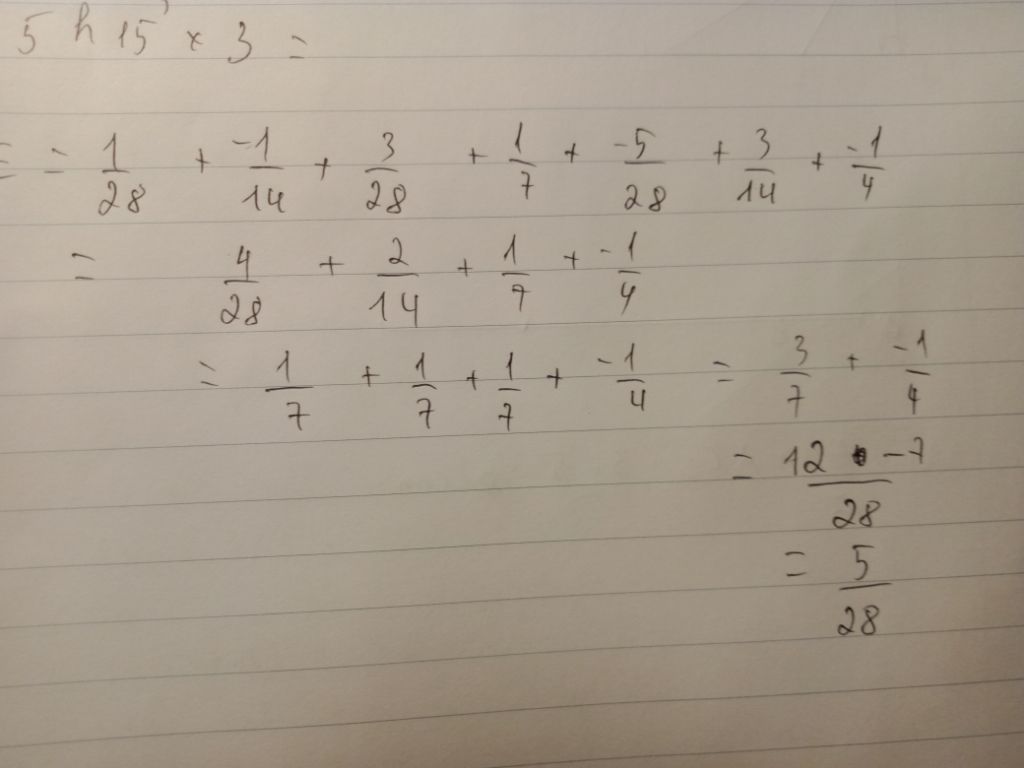 5 h 15' × 3 =
= - 1/28 + -1/14 + 3/28 + 1/7 + -5/28 + 3/14 + -1/4
= 4/28 + 2/14 + 1/7 + -1/4
= 1/7 + 1/7 + 1/7 + -1/4 = 3/7 + -1/4
= 12 - 7/28
= 5/28